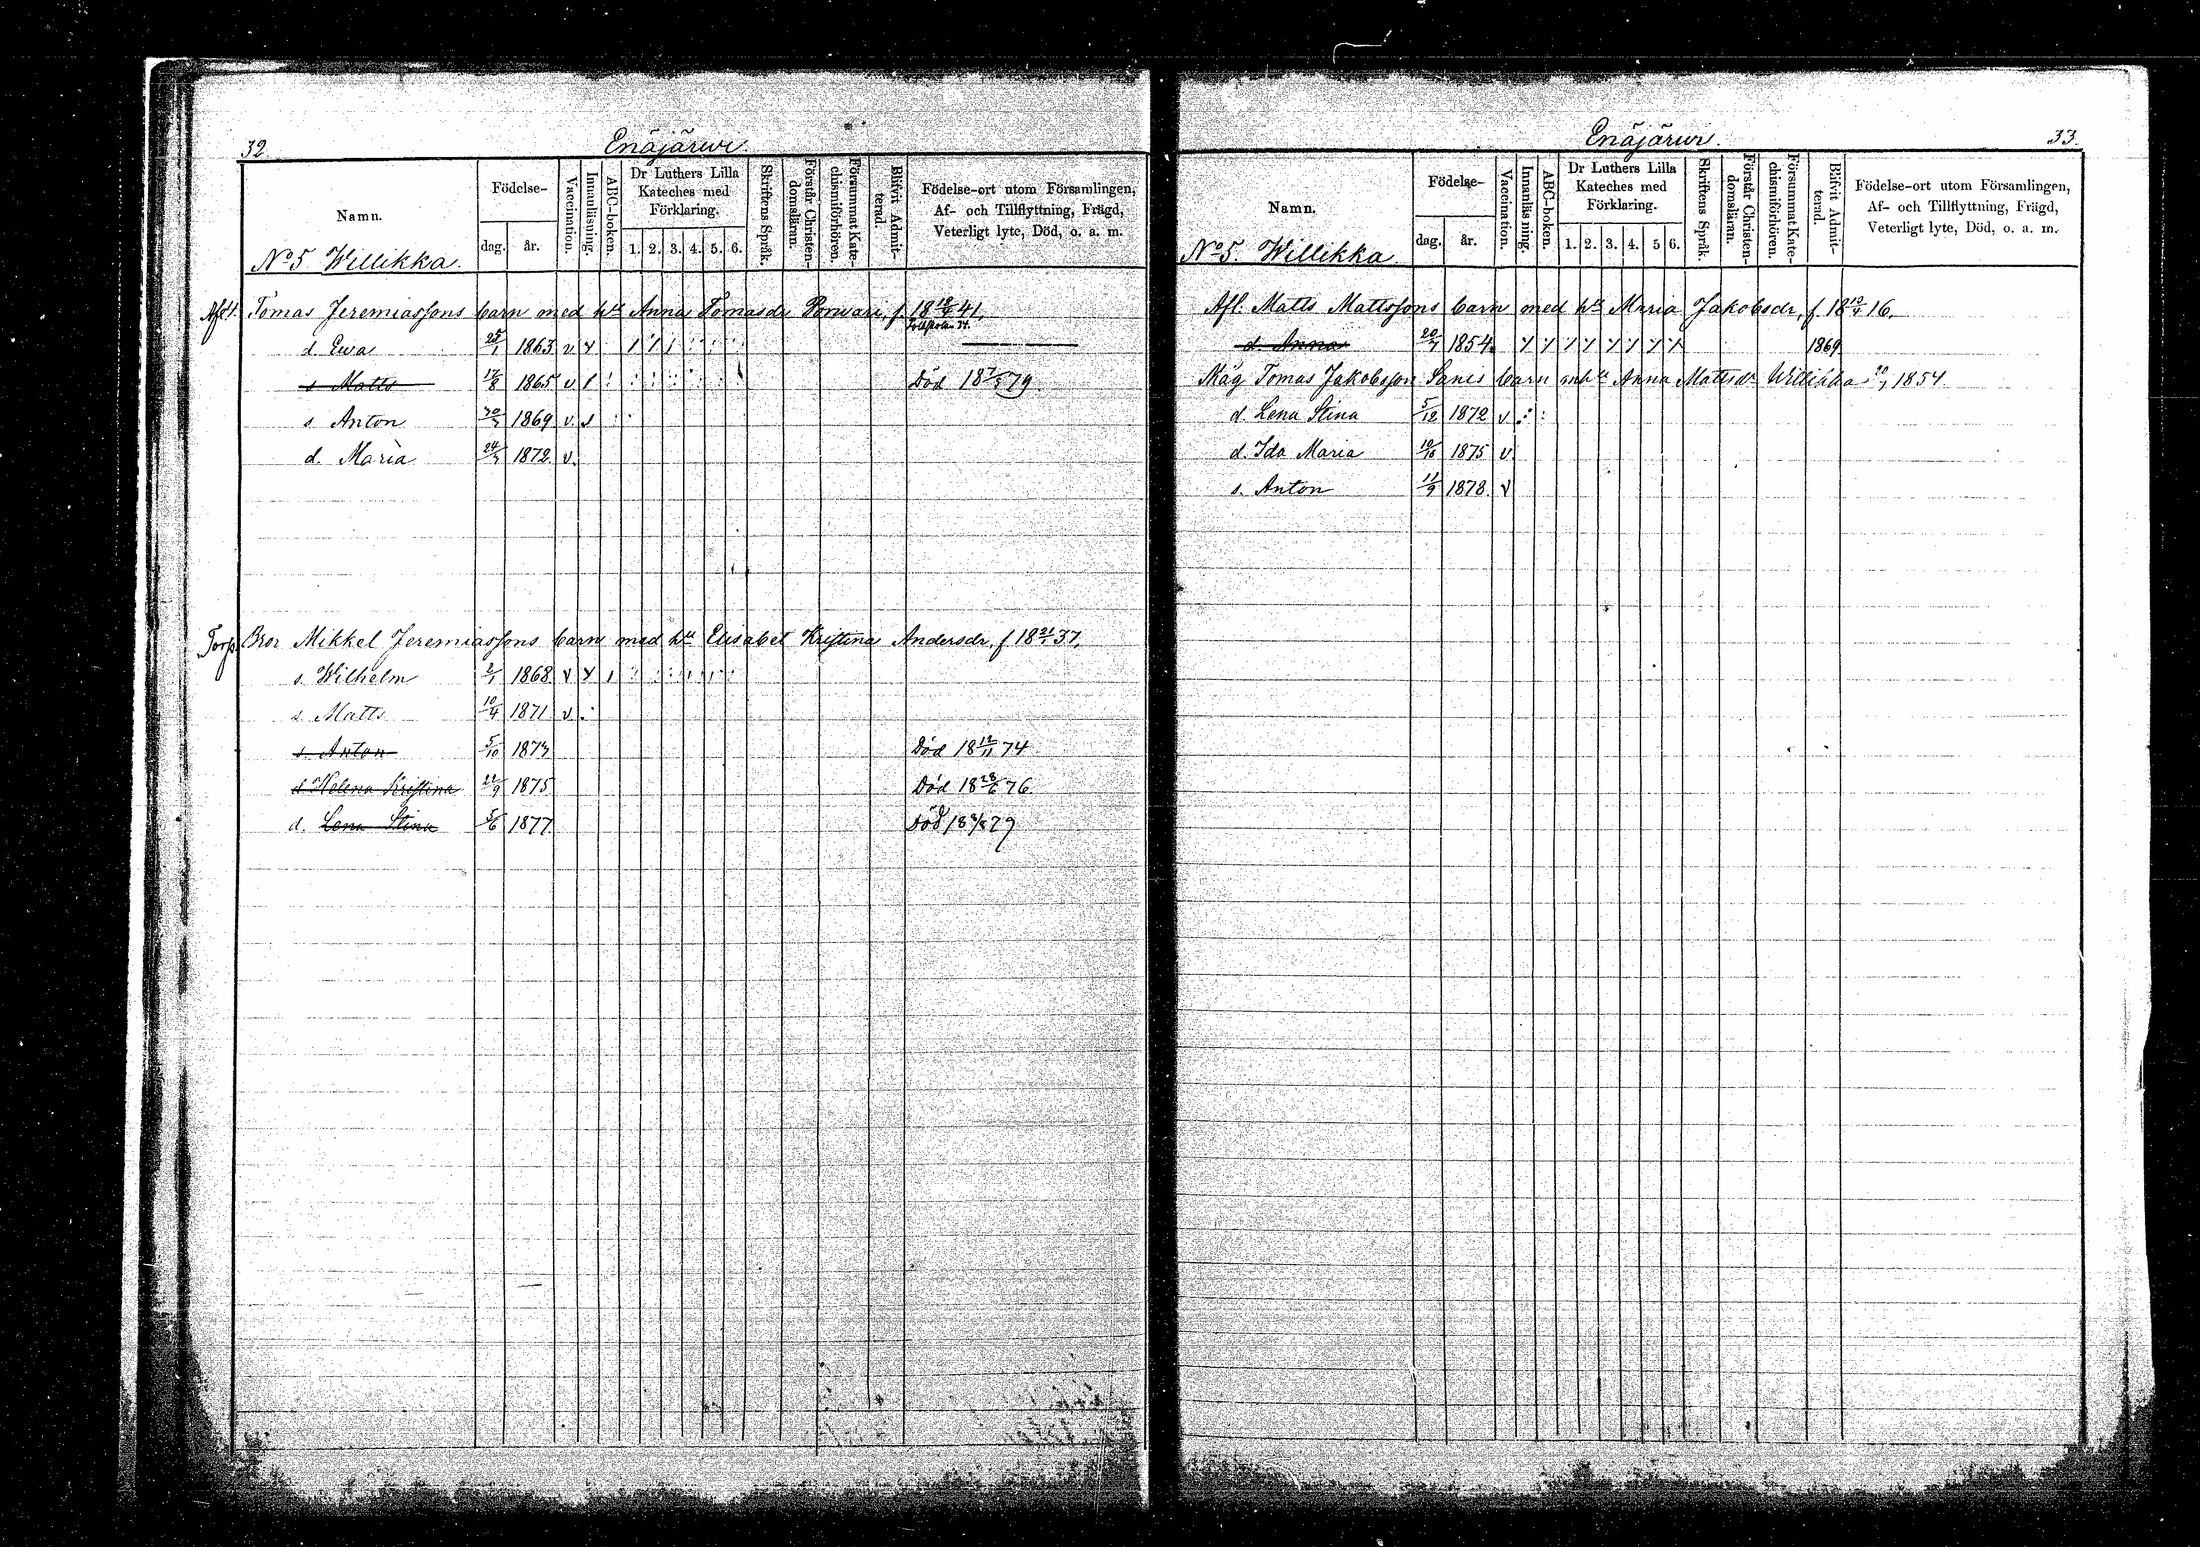 32.
Enäjärwi.
Namn.
Födelse-
dag. år.
Vaccination.
Innanläsning.
ABC-boken.
Dr Luthers Lilla Kateches med Förklaring.
1. 2. 3. 4. 5. 6.
Skriftens Språk.
Förstår Christendomsläran.
Försummat Katechismiförhören.
Blifvit Admitterad.
Födelse-ort utom Församlingen,
Af- och Tillflyttning, Frägd,
Veterligt lyte, Död, o. a. m.
No 5 Willikka.
Tomas Jeremiassons barn med hu Anna Tomasdr Porwari, f. 18 41,
d. Ewa 25/1 1863 v
s Matts 17/8 1865 v Död 18 7/5 79
s Anton 1869 v.
d. Maria 1872. v.
Torp. Bror Mikkel Jeremiassons barn med hu Elisabet Kristina Andersdr, f 18 21/1 37,
s. Wilhelm 2/1 1868. v
s. Matts 10/4 1871 v
s. Anton 5/10 1873 Död 18 12/11 74
d Helena Kristina 1875 Död 18 28/6 76
d. Lena Stina 5/6 1877. Död 18 79
33.
Enäjärwi.
Namn.
Födelse-
dag. år.
Vaccination.
Innanläsning.
ABC-boken.
Dr Luthers Lilla Kateches med Förklaring.
1. 2. 3. 4. 5 6.
Skriftens Språk.
Förstår Christendomsläran.
Försummat Katechismiförhören.
Blifvit Admitterad.
Födelse-ort utom Församlingen,
Af- och Tillflyttning, Frägd,
Veterligt lyte, Död, o. a. m.
No 5. Willikka.
Afl. Matts Mattssons barn med hu Maria Jakobsdr, f 18 16.
d. Anna 20/7 1854. 1869
Måg Tomas Jakobsson barn m hu Anna Mattsdr Willikka 20/7 1854
d. Lena Stina 5/12 1872 v
d. Ida Maria 10/10 1875 v.
s. Anton 11/9 1878. v